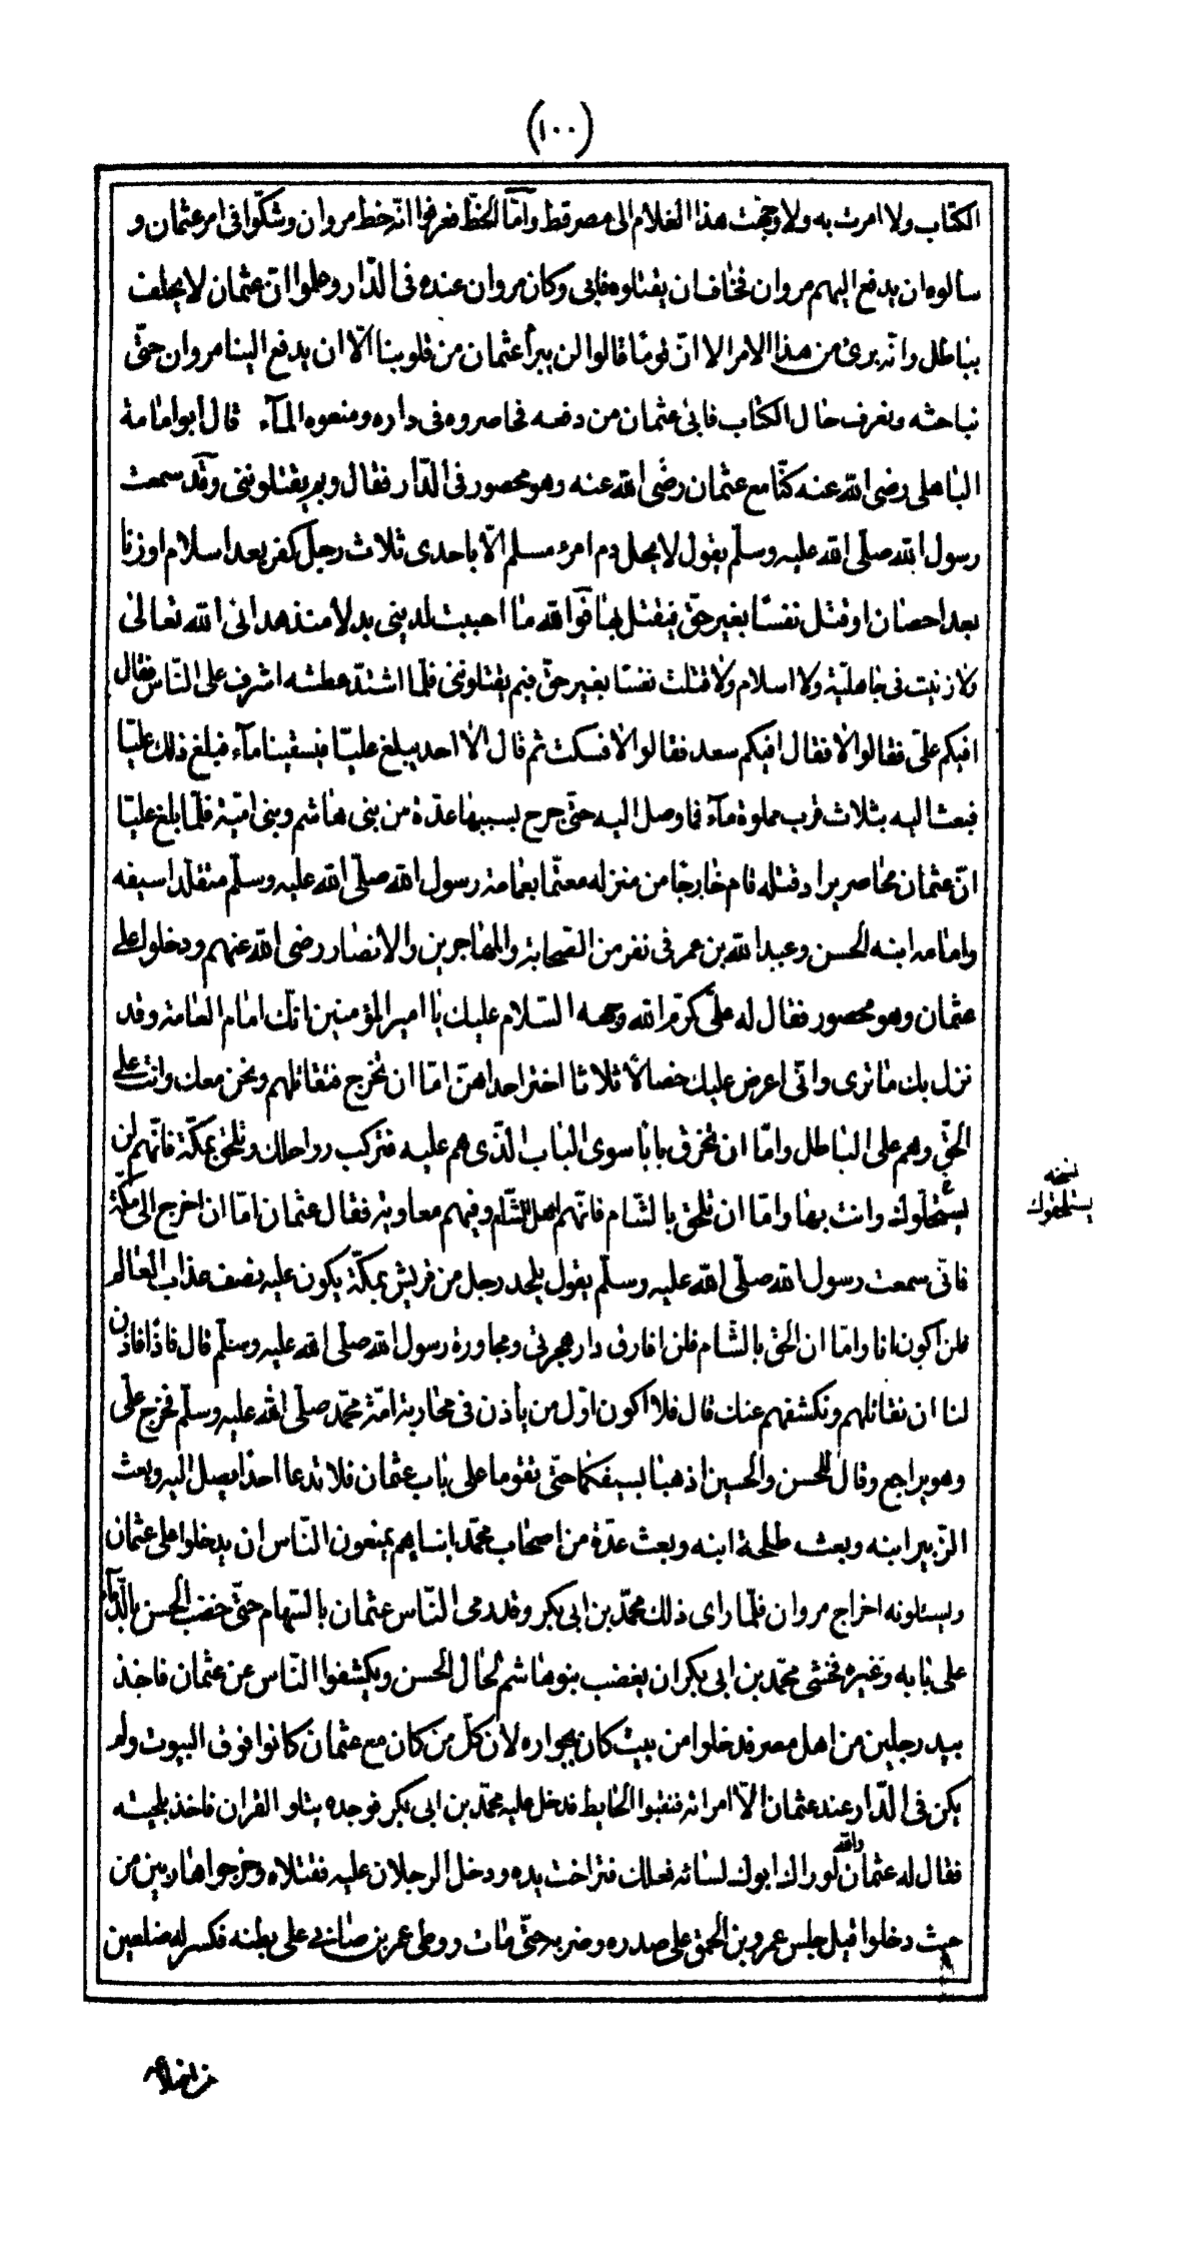 (١٠٠)
الكتاب ولا امرت به ولا وجهت هذا الغلام الى مصر قط وامّا الخطّ فعرفوا انّه خط مروان وشكّوا فى امر عثمان و
سالوه ان يدفع اليهم مروان فخاف ان يقتلوه فابى وكان مروان عنده فى الدّار وعلموا انّ عثمان لا يحلف
بباطل وانّه برئ من هذا الامر الا انّ قومًا قالوا لن يبرأ عثمان من قلوبنا الّا ان يدفع الينا مروان حتّى
نباحثه ونعرف حال الكتاب فابى عثمان من دفعه فحاصروه فى داره ومنعوه المآء قال ابو امامة
الباهلى رضى الله عنه كنّا مع عثمان رضى الله عنه وهو محصور فى الدّار فقال وبم يقتلوننى وقد سمعت
رسول الله صلّى الله عليه وسلّم يقول لا يحل دم امرء مسلم الّا باحدى ثلاث رجل كفر بعد اسلام او زنا
بعد احصان او قتل نفسًا بغير حقّ فيقتل بها فوالله ما احببت لدينى بدلا منذ هدانى الله تعالى
ولا زنيت فى جاهليّة ولا اسلام ولا قتلت نفسًا بغير حقّ فبم يقتلوننى فلمّا اشتدّ عطشه اشرف على النّاس فقال
افيكم علىّ فقالوا لا فقال افيكم سعد فقالوا لا فسكت ثم قال الا احد يبلغ عليّا فيسقينا مآء فبلغ ذلك عليّا
فبعث اليه بثلاث قرب مملوة مآء فما وصل اليه حتّى جرح بسببها عدّة من بنى هاشم وبنى اميّة فلمّا بلغ عليّا
انّ عثمان محاصر يراد قتله قام خارجًا من منزله معتمّا بعمامة رسول الله صلّى الله عليه وسلّم متقلّدا سيفه
وامامه ابنه الحسن وعبد الله بن عمر فى نفر من الصّحابة والمهاجرين والانصار رضى الله عنهم ودخلوا على
عثمان وهو محصور فقال له علىّ كرّم الله وجهه السّلام عليك يا امير المؤمنين انّك امام العامة وقد
نزل بك ما ترى وانّى اعرض عليك خصالًا ثلاثا اختر احداهنّ امّا ان تخرج فتقاتلهم ونحن معك وانت على
الحقّ وهم على الباطل وامّا ان تخرق بابا سوى الباب الّذى هم عليه فتركب رواحلك وتلحق بمكّة فانّهم لن
يستحلّوك وانت بها وامّا ان تلحق بالشام فانّهم اهل الشّام وفيهم معاوية فقال عثمان امّا ان اخرج الى مكّة
نسخه
يستلحقوك
فانّى سمعت رسول الله صلّى الله عليه وسلّم يقول يلحد رجل من قريش بمكّة يكون عليه نصف عذاب العالم
فلن اكون انا وامّا ان الحق بالشّام فلن افارق دار هجرتى ومجاورة رسول الله صلّى الله عليه وسلّم قال فاذًا فاذن
لنا ان نقاتلهم ونكشفهم عنك قال فلا اكون اوّل من يأذن فى محاربة امّة محمّد صلّى الله عليه وسلّم فخرج علىّ
وهو يراجع وقال للحسن والحسين اذهبا بسيفكما حتّى تقوما على باب عثمان فلا تدعا احدًا يصل اليه وبعث
الزّبير ابنه وبعث طلحة ابنه وبعث عدّة من اصحاب محمّد ابناءهم يمنعون النّاس ان يدخلوا على عثمان
ويسئلونه اخراج مروان فلمّا راى ذلك محمّد بن ابى بكر وقد رمى النّاس عثمان بالسّهام حتّى خضب الحسن بالدّماء
على بابه وغيره فخشى محمّد بن ابى بكر ان يغضب بنو هاشم لحال الحسن ويكشفوا النّاس عن عثمان فاخذ
بيد رجلين من اهل مصر فدخلوا من بيت كان بجواره لانّ كلّ من كان مع عثمان كانوا فوق البيوت ولم
يكن فى الدّار عند عثمان الّا امراته فنقبوا الحايط فدخل عليه محمّد بن ابى بكر فوجده يتلو القران فاخذ بلحيته
فقال له عثمان والله لو راك ابوك لسائه فعلك فتراخت يده ودخل الرجلان عليه فقتلاه وخرجوا هاربين من
حيث دخلوا قيل جلس عمرو بن الحمق على صدره وضربه حتّى مات ووطى عمر بن ضابئ على بطنه فكسر له ضلعين
من اضلاعه